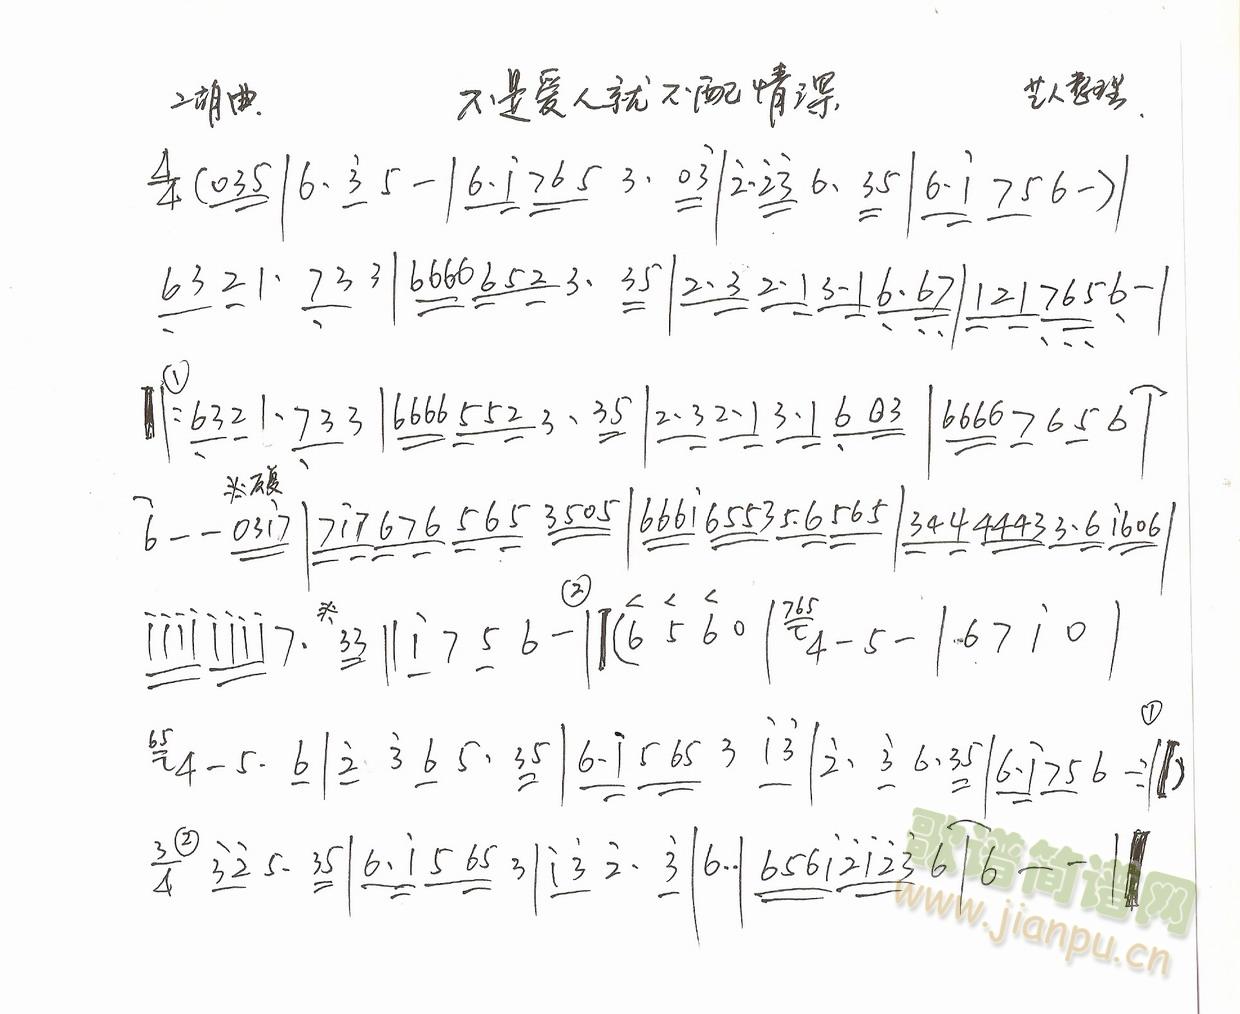 二胡曲 不是爱人就不配情深 艺人整理
4/4 (035|6·35-|6·i7653·03|2·236·35|6·i756-)|
6321·733|66666523·35|2·32·13·16·67|1217656-|
①
‖:6321·733|66665523·35|2·32·13·1603|66667656|
※反复
6--03i7|7i76765653505|666i65535·6565|34444433·6i606|
iiiiiiii7·※33‖i756-‖②(6560|765 4-5-|·67i0|
65 4-5·6|2·365·35|6·i5653i3|2·36·35|6·i756-:‖) ①
3/4 ② 325·35|6·i5653|i32·3|6··|656i2i236|6--‖
歌谱简谱网
www.jianpu.cn